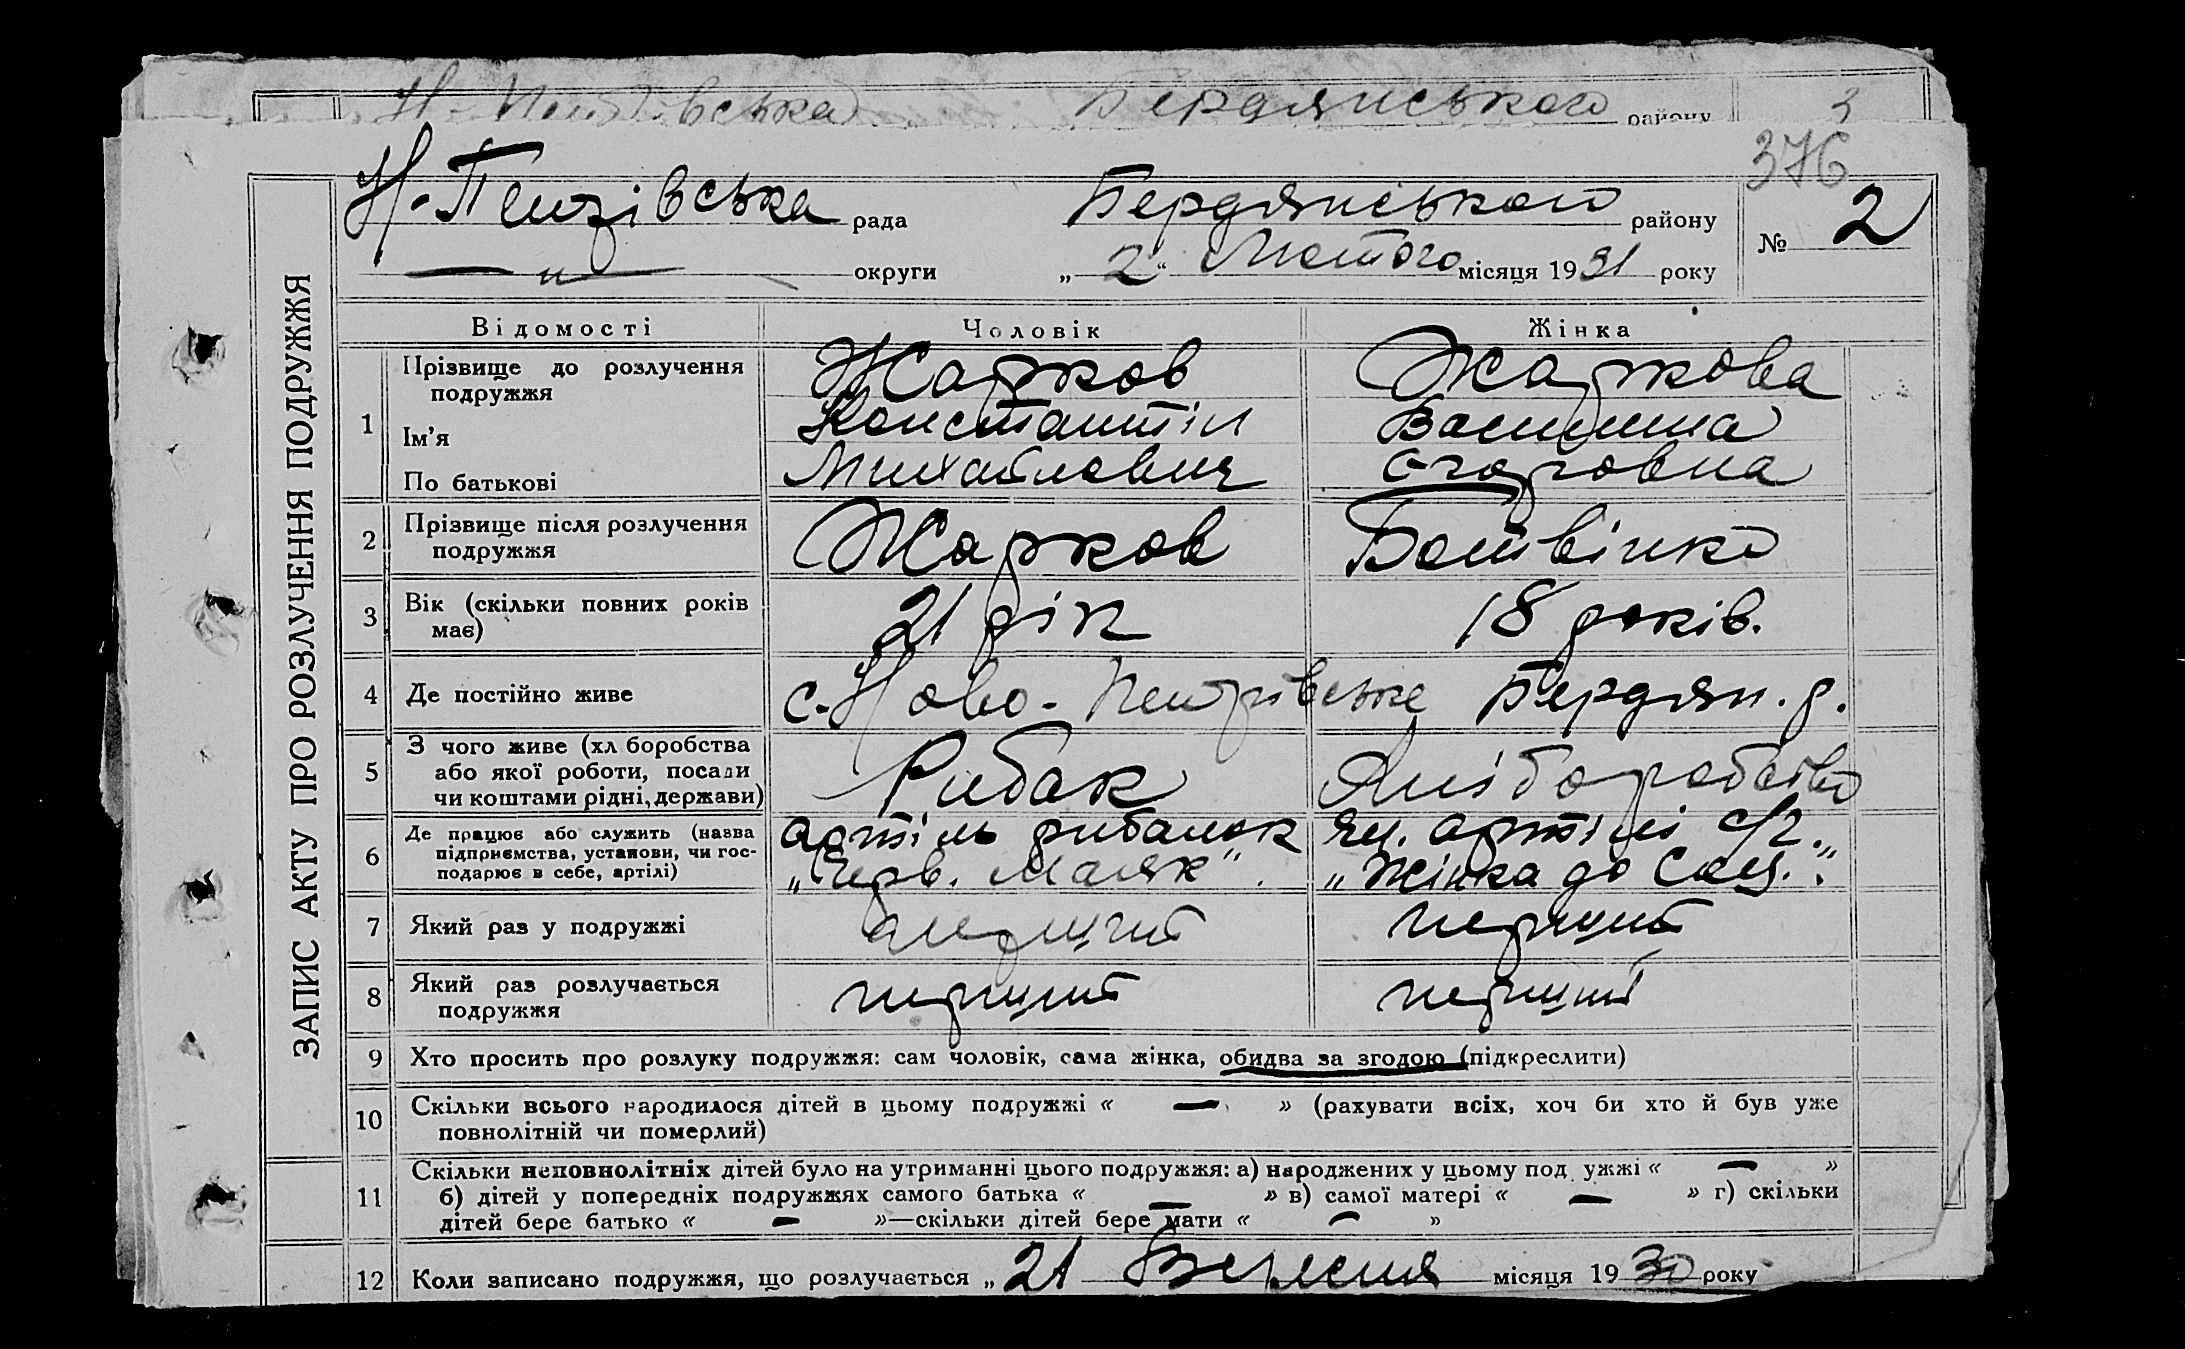 Бердянського району 3
376
Н-Петрівська рада Бердянського району № 2
округи „ 2 “ Лютого місяця 1931 року
ЗАПИС АКТУ ПРО РОЗЛУЧЕННЯ ПОДРУЖЖЯ
Відомості Чоловік Жінка
1 Прізвище до розлучення подружжя Жарков Жаркова
Ім'я Константін Василина
По батькові Михайлович
2 Прізвище після розлучення подружжя Жарков Ботвінко
3 Вік (скільки повних років має) 21 рік 18 років.
4 Де постійно живе с. Ново-Петрівське Бердян. р.
5 З чого живе (хліборобства або якої роботи, посади чи коштами рідні, держави) Рибак Хліборобство
6 Де працює або служить (назва підприємства, установи, чи господарює в себе, артілі) артіль рибалок „Черв. Маяк“. чл. артілі с/г. „Жінка до Соц.“.
7 Який раз у подружжі перший перший
8 Який раз розлучається подружжя перший перший
9 Хто просить про розлуку подружжя: сам чоловік, сама жінка, обидва за згодою (підкреслити)
10 Скільки всього народилося дітей в цьому подружжі « — » (рахувати всіх, хоч би хто й був уже
повнолітній чи померлий)
11 Скільки неповнолітніх дітей було на утриманні цього подружжя: а) народжених у цьому под ужжі « — »
б) дітей у попередніх подружжях самого батька « — » в) самої матері « — » г) скільки
дітей бере батько « — »—скільки дітей бере мати « — »
12 Коли записано подружжя, що розлучається „ 21 Вересня місяця 1930 року